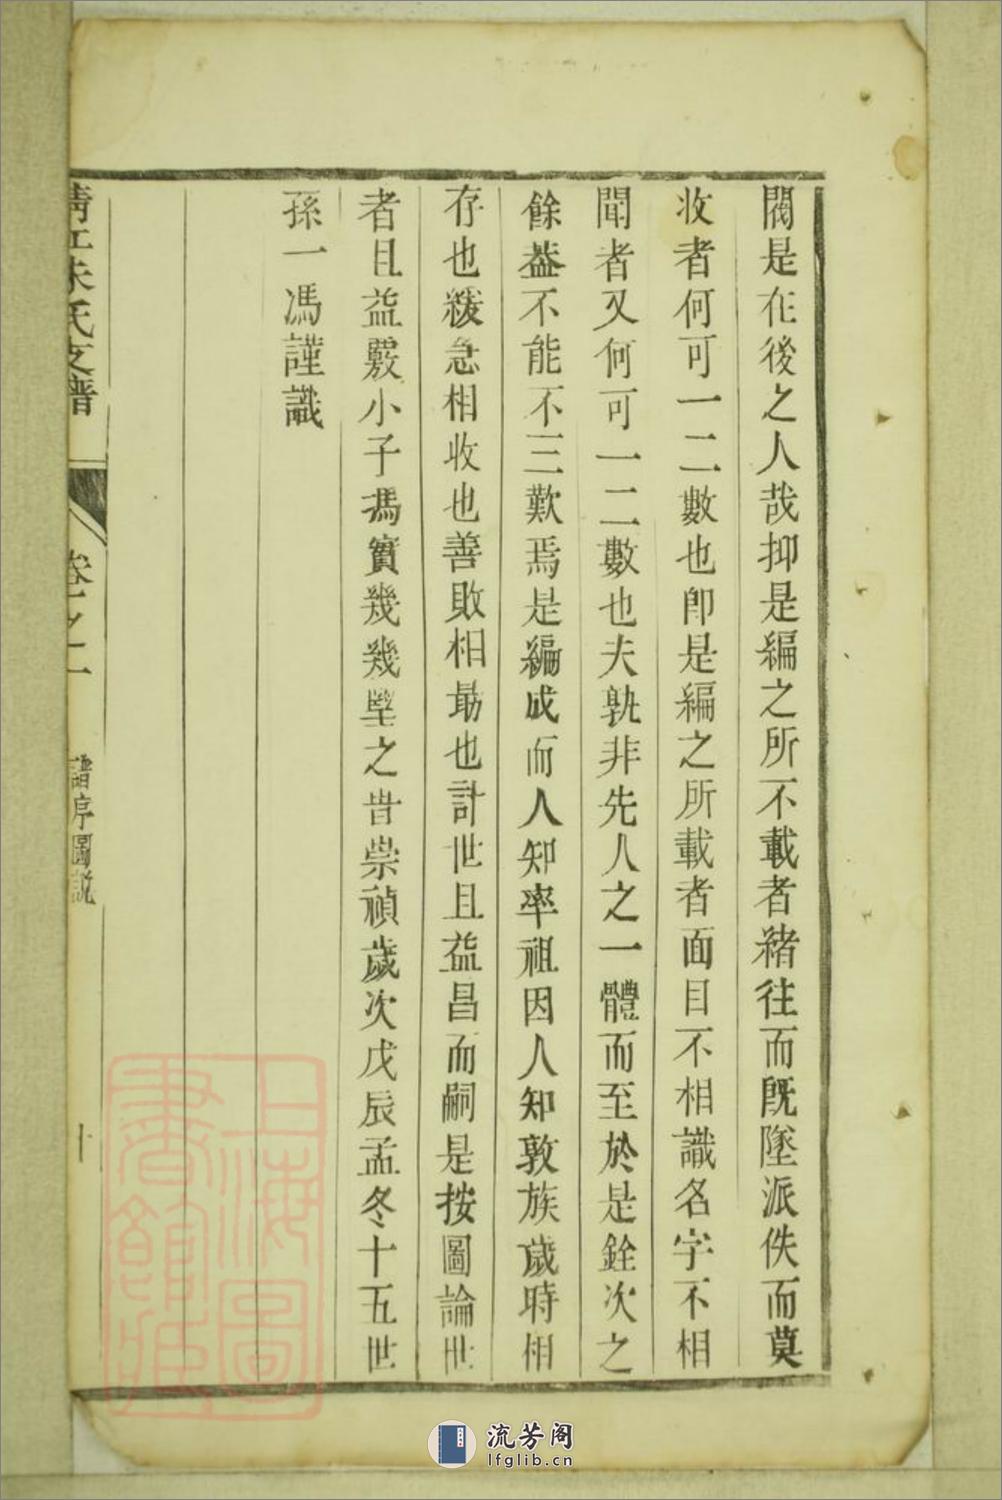 閥是在後之人哉抑是編之所不載者緒往而旣墜派佚而莫
收者何可一二數也卽是編之所載者面目不相識名字不相
聞者又何可一二數也夫孰非先人之一體而至於是銓次之
餘葢不能不三歎焉是編成而人知率祖因人知敦族歲時相
存也緩急相收也善敗相勗也計世且益昌而嗣是按圖論世
者且益覈小子馮實幾幾望之旹崇禎歲次戊辰孟冬十五世
孫一馮謹識
清江朱氏支譜
卷之二
譜序圖説
十
上海圖
書館藏
流芳阁
lfglib.cn